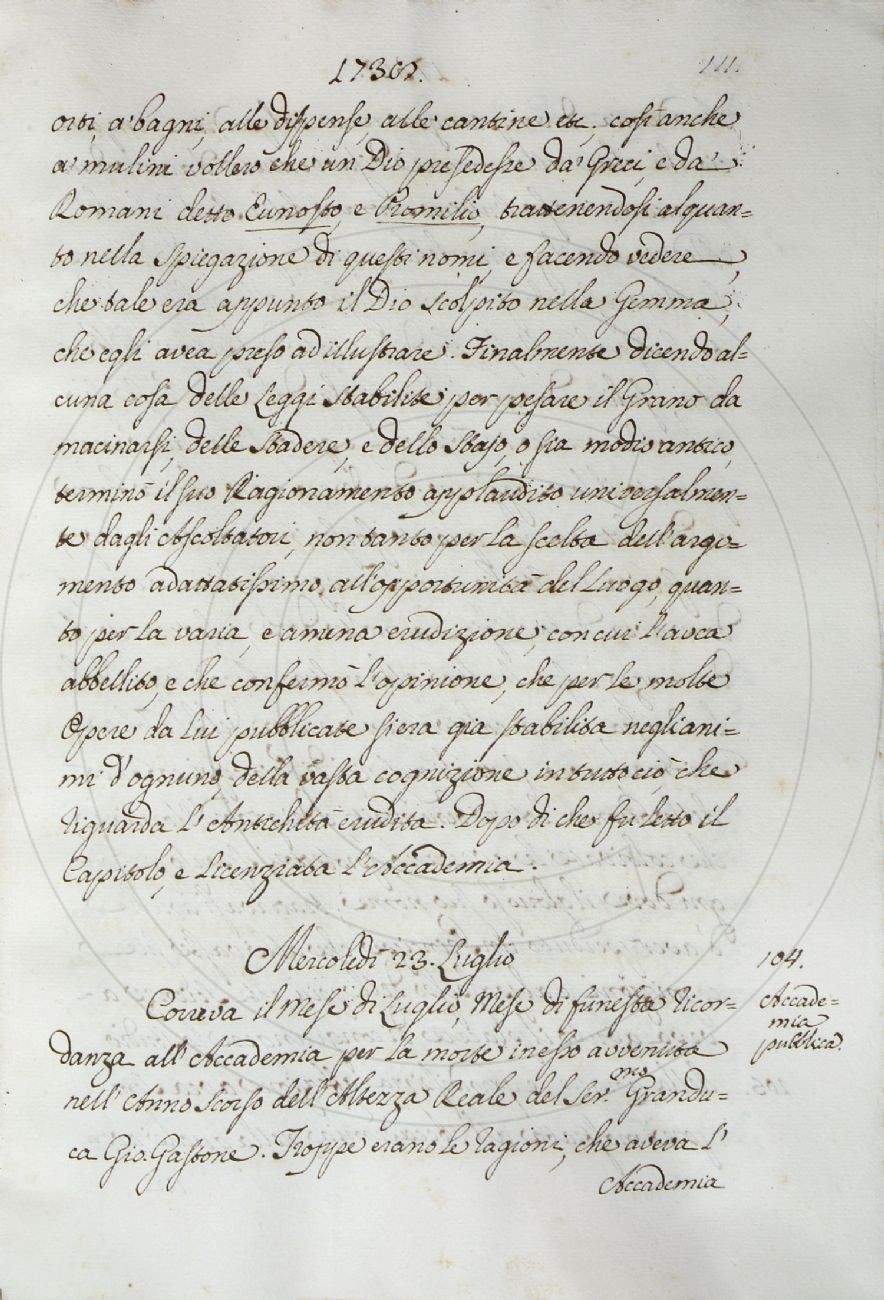 1738. 111.
orti, a' bagni, alle dispense, alle cantine etc. così anche
a' mulini vollero che un Dio presedesse da' Greci, e da'
Romani detto Eunosto, e Promilio, trattenendosi alquan=
to nella spiegazione di questi nomi, e facendo vedere,
che tale era appunto il Dio scolpito nella Gemma,
che egli avea preso ad illustrare. Finalmente dicendo al=
cuna cosa delle Leggi stabilite per pesare il Grano da
macinarsi, delle stadere, e dello stajo, o sia modio antico,
terminò il suo Ragionamento applaudito universalmen=
te dagli Ascoltatori, non tanto per la scelta dell'argo=
mento adattatissimo all'opportunità del Luogo, quan=
to per la varia, e amena erudizione, con cui l'avea
abbellito, e che confermò l'opinione, che per le molte
Opere da lui pubblicate si era già stabilita negli ani=
mi d'ognuno, della vasta cognizione in tutto ciò, che
riguarda l'Antichità erudita. Dopo di che fu letto il
Capitolo, e licenziata l'Accademia.
Mercoledì 23. Luglio
104.
Accade=
mia
pubblica.
Correva il Mese di Luglio, Mese di funesta ricor=
danza all'Accademia per la morte in esso avvenuta
nell'Anno scorso dell'Altezza Reale del Ser.mo Grandu=
ca Gio. Gastone. Troppe erano le ragioni, che aveva l'
Accademia